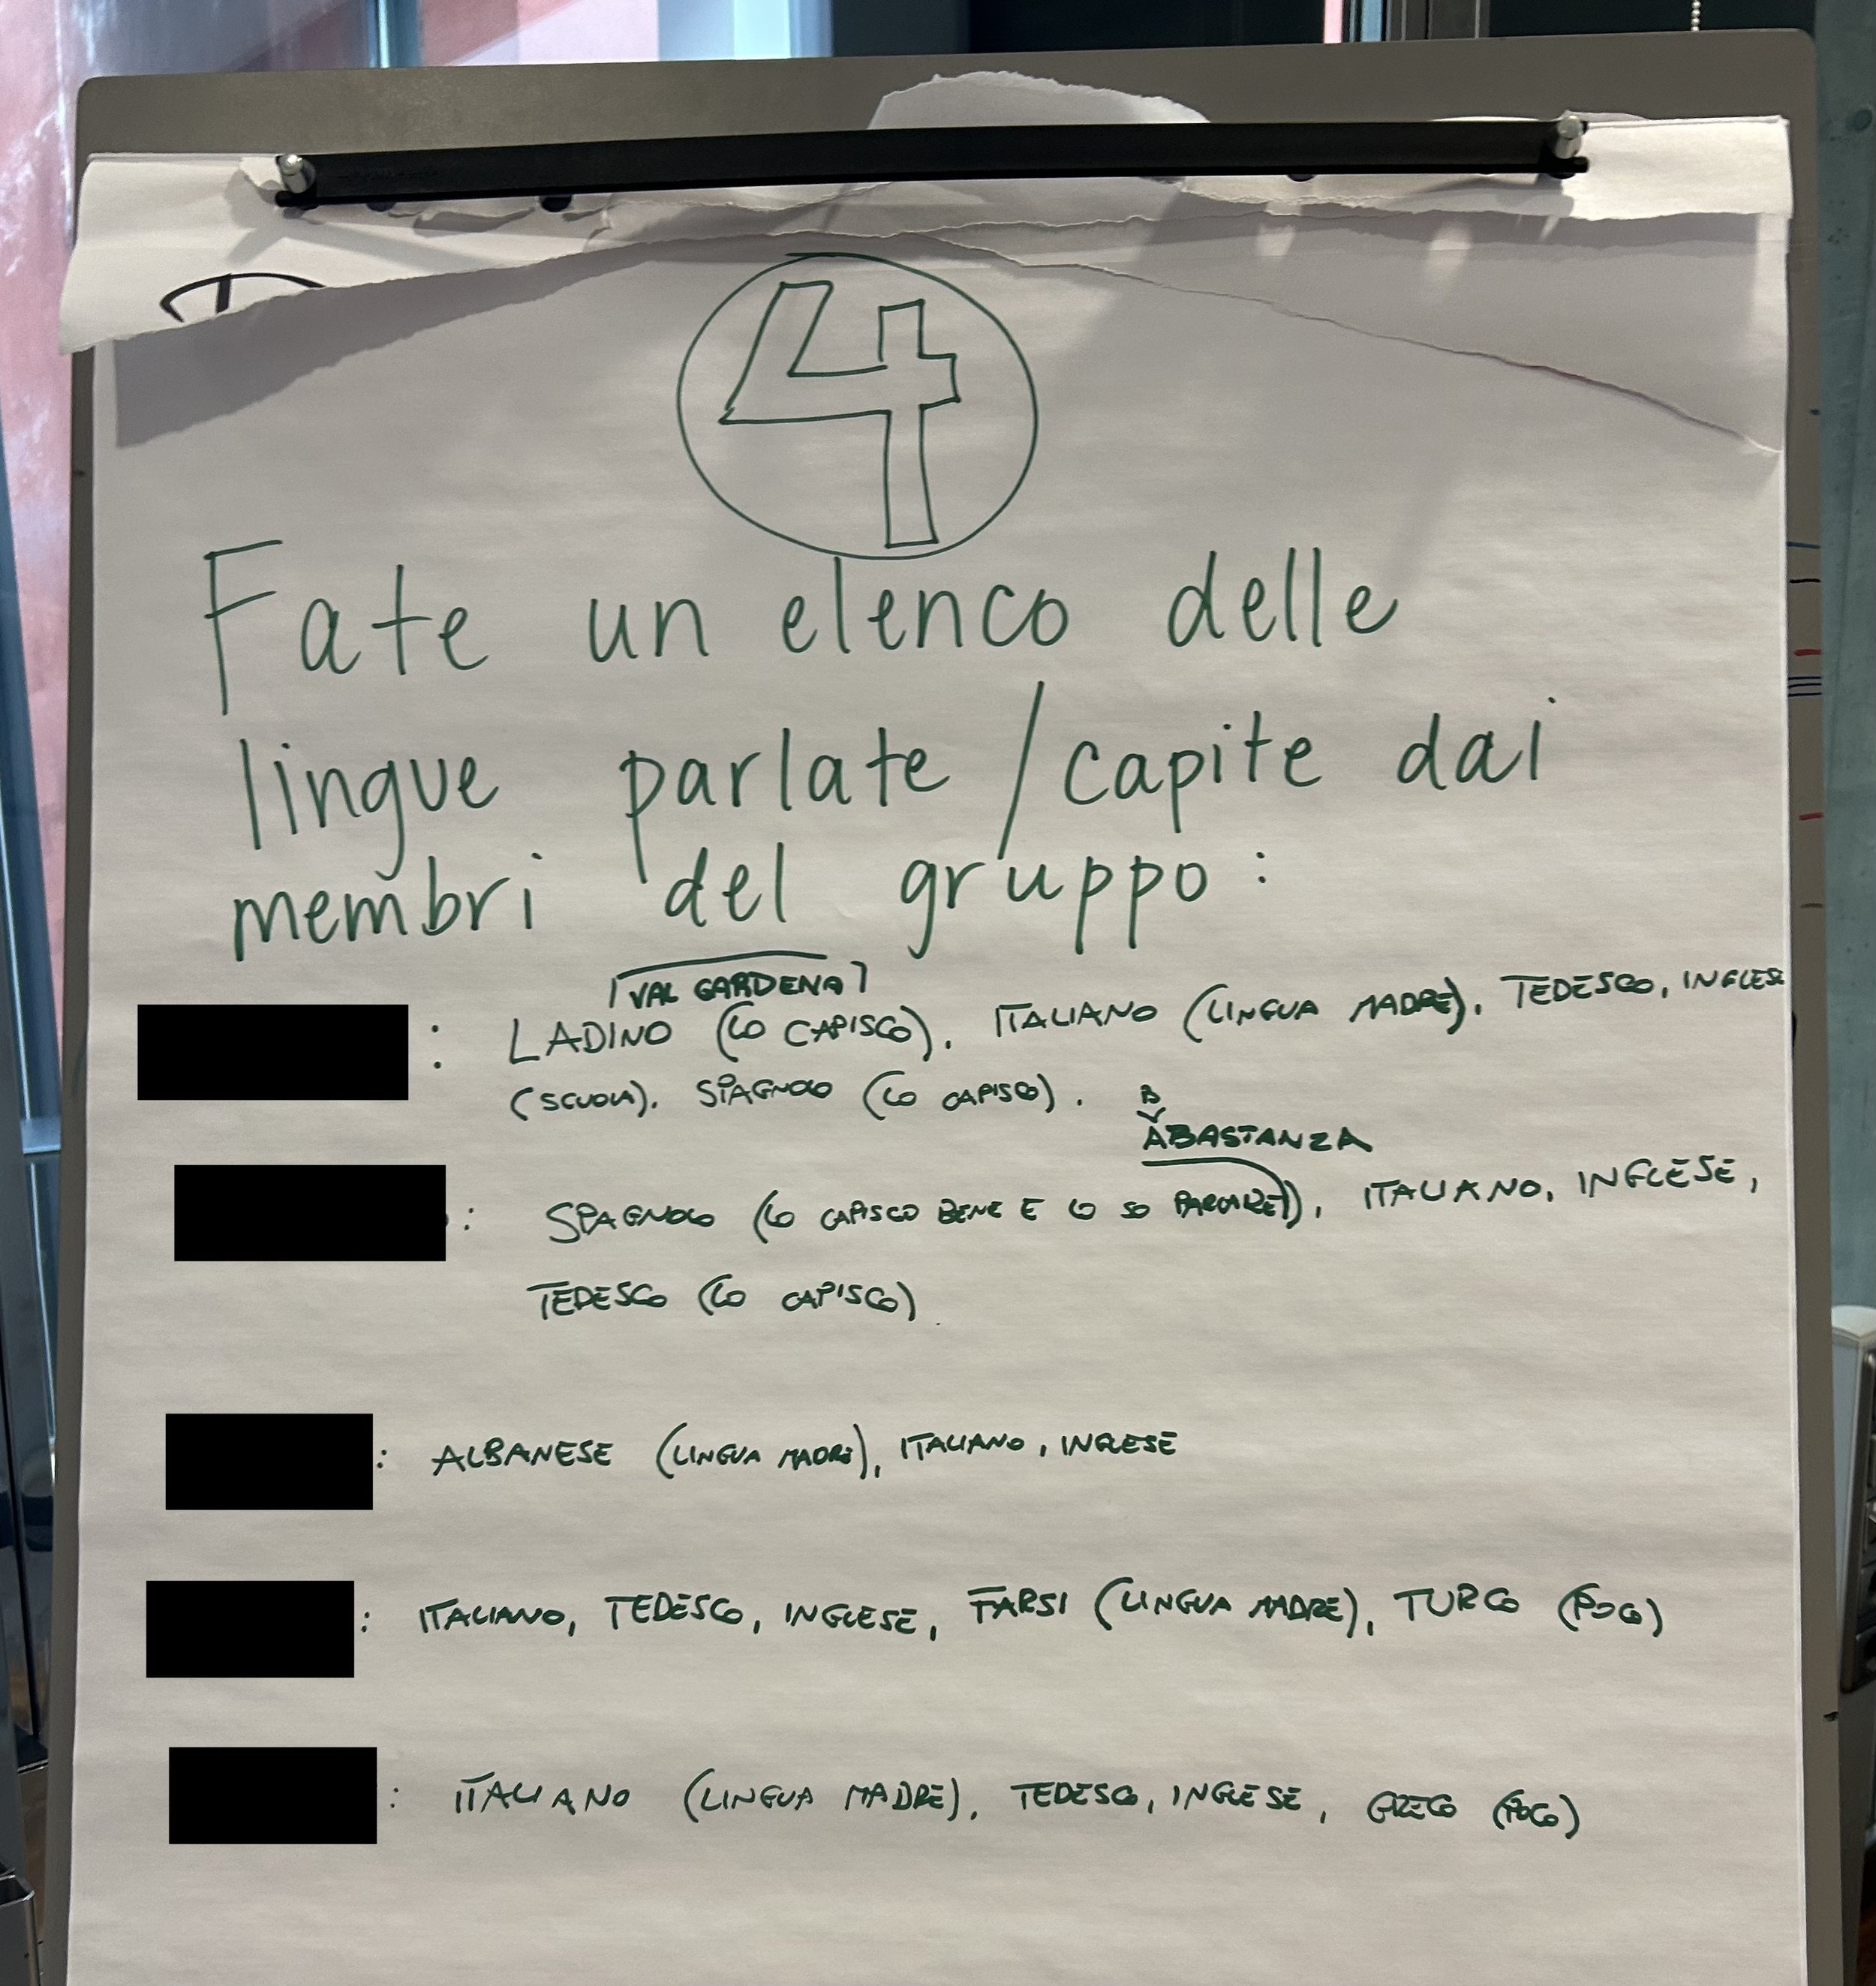 4
Fate un elenco delle
lingue parlate / capite dai
membri del gruppo:
VAL GARDENA
: LADINO (LO CAPISCO), ITALIANO (LINGUA MADRE), TEDESCO, INGLESE
(SCUOLA), SPAGNOLO (LO CAPISCO).
B
ABASTANZA
: SPAGNOLO (LO CAPISCO BENE E LO SO PARLARE), ITALIANO, INGLESE,
TEDESCO (LO CAPISCO)
: ALBANESE (LINGUA MADRE), ITALIANO, INGLESE
: ITALIANO, TEDESCO, INGLESE, FARSI (LINGUA MADRE), TURCO (POCO)
: ITALIANO (LINGUA MADRE), TEDESCO, INGLESE, GRECO (POCO)